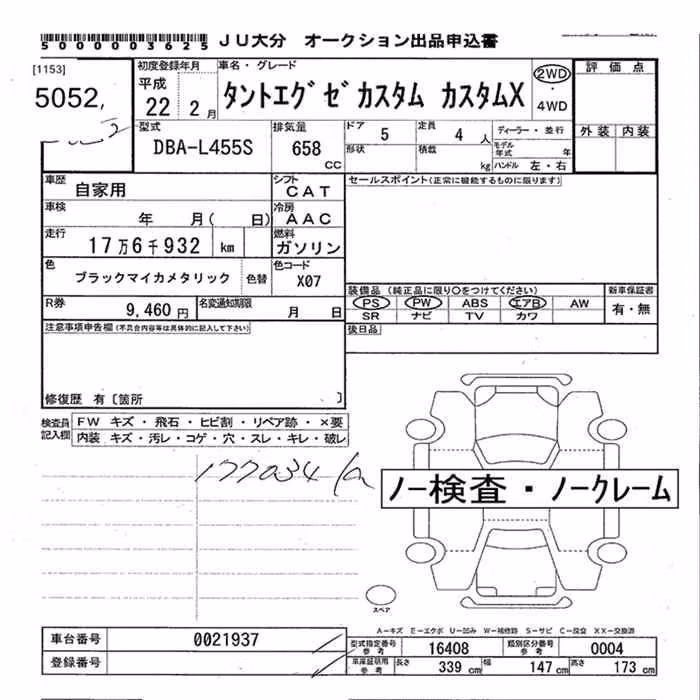 50000003625 JU大分 オークション出品申込書
[1153] 初度登録年月 車名・グレード
5052, 平成 22年 2月 タントエグゼカスタム カスタムX 2WD・4WD 評価点
型式 DBA-L455S 排気量 658 CC ドア 5 定員 4 人 ディーラー・並行 外装 内装
形状 積載 kg モデル年式 年 ハンドル 左・右
車歴 自家用 シフト CAT セールスポイント(正常に機能するものに限ります)
車検 年 月( 日) 冷房 AAC
走行 17万6千932 km 燃料 ガソリン
色 ブラックマイカメタリック 色替 色コード X07
装備品 (純正品に限り○をつけてください) 新車保証書
R券 9,460円 名変通知期限 月 日 PS PW ABS エアB AW 有・無
SR ナビ TV カワ
注意事項申告欄(不具合内容等は具体的に記入して下さい) 後日品
修復歴 有〔箇所 〕
検査員記入欄 FW キズ・飛石・ヒビ割・リペア跡・×要
内装 キズ・汚レ・コゲ・穴・スレ・キレ・破レ
177034 km
ノー検査・ノークレーム
スペア
A-キズ E-エクボ U-凹み W-補修跡 S-サビ C-腐食 XX-交換済
車台番号 0021937 型式指定番号 参考 16408 類別区分番号 参考 0004
登録番号 車庫証明用 参考 長さ 339 cm 幅 147 cm 高さ 173 cm